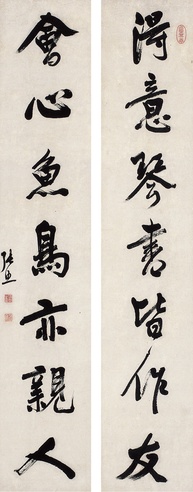 得意琴書皆作友
會心魚鳥亦親人
張照